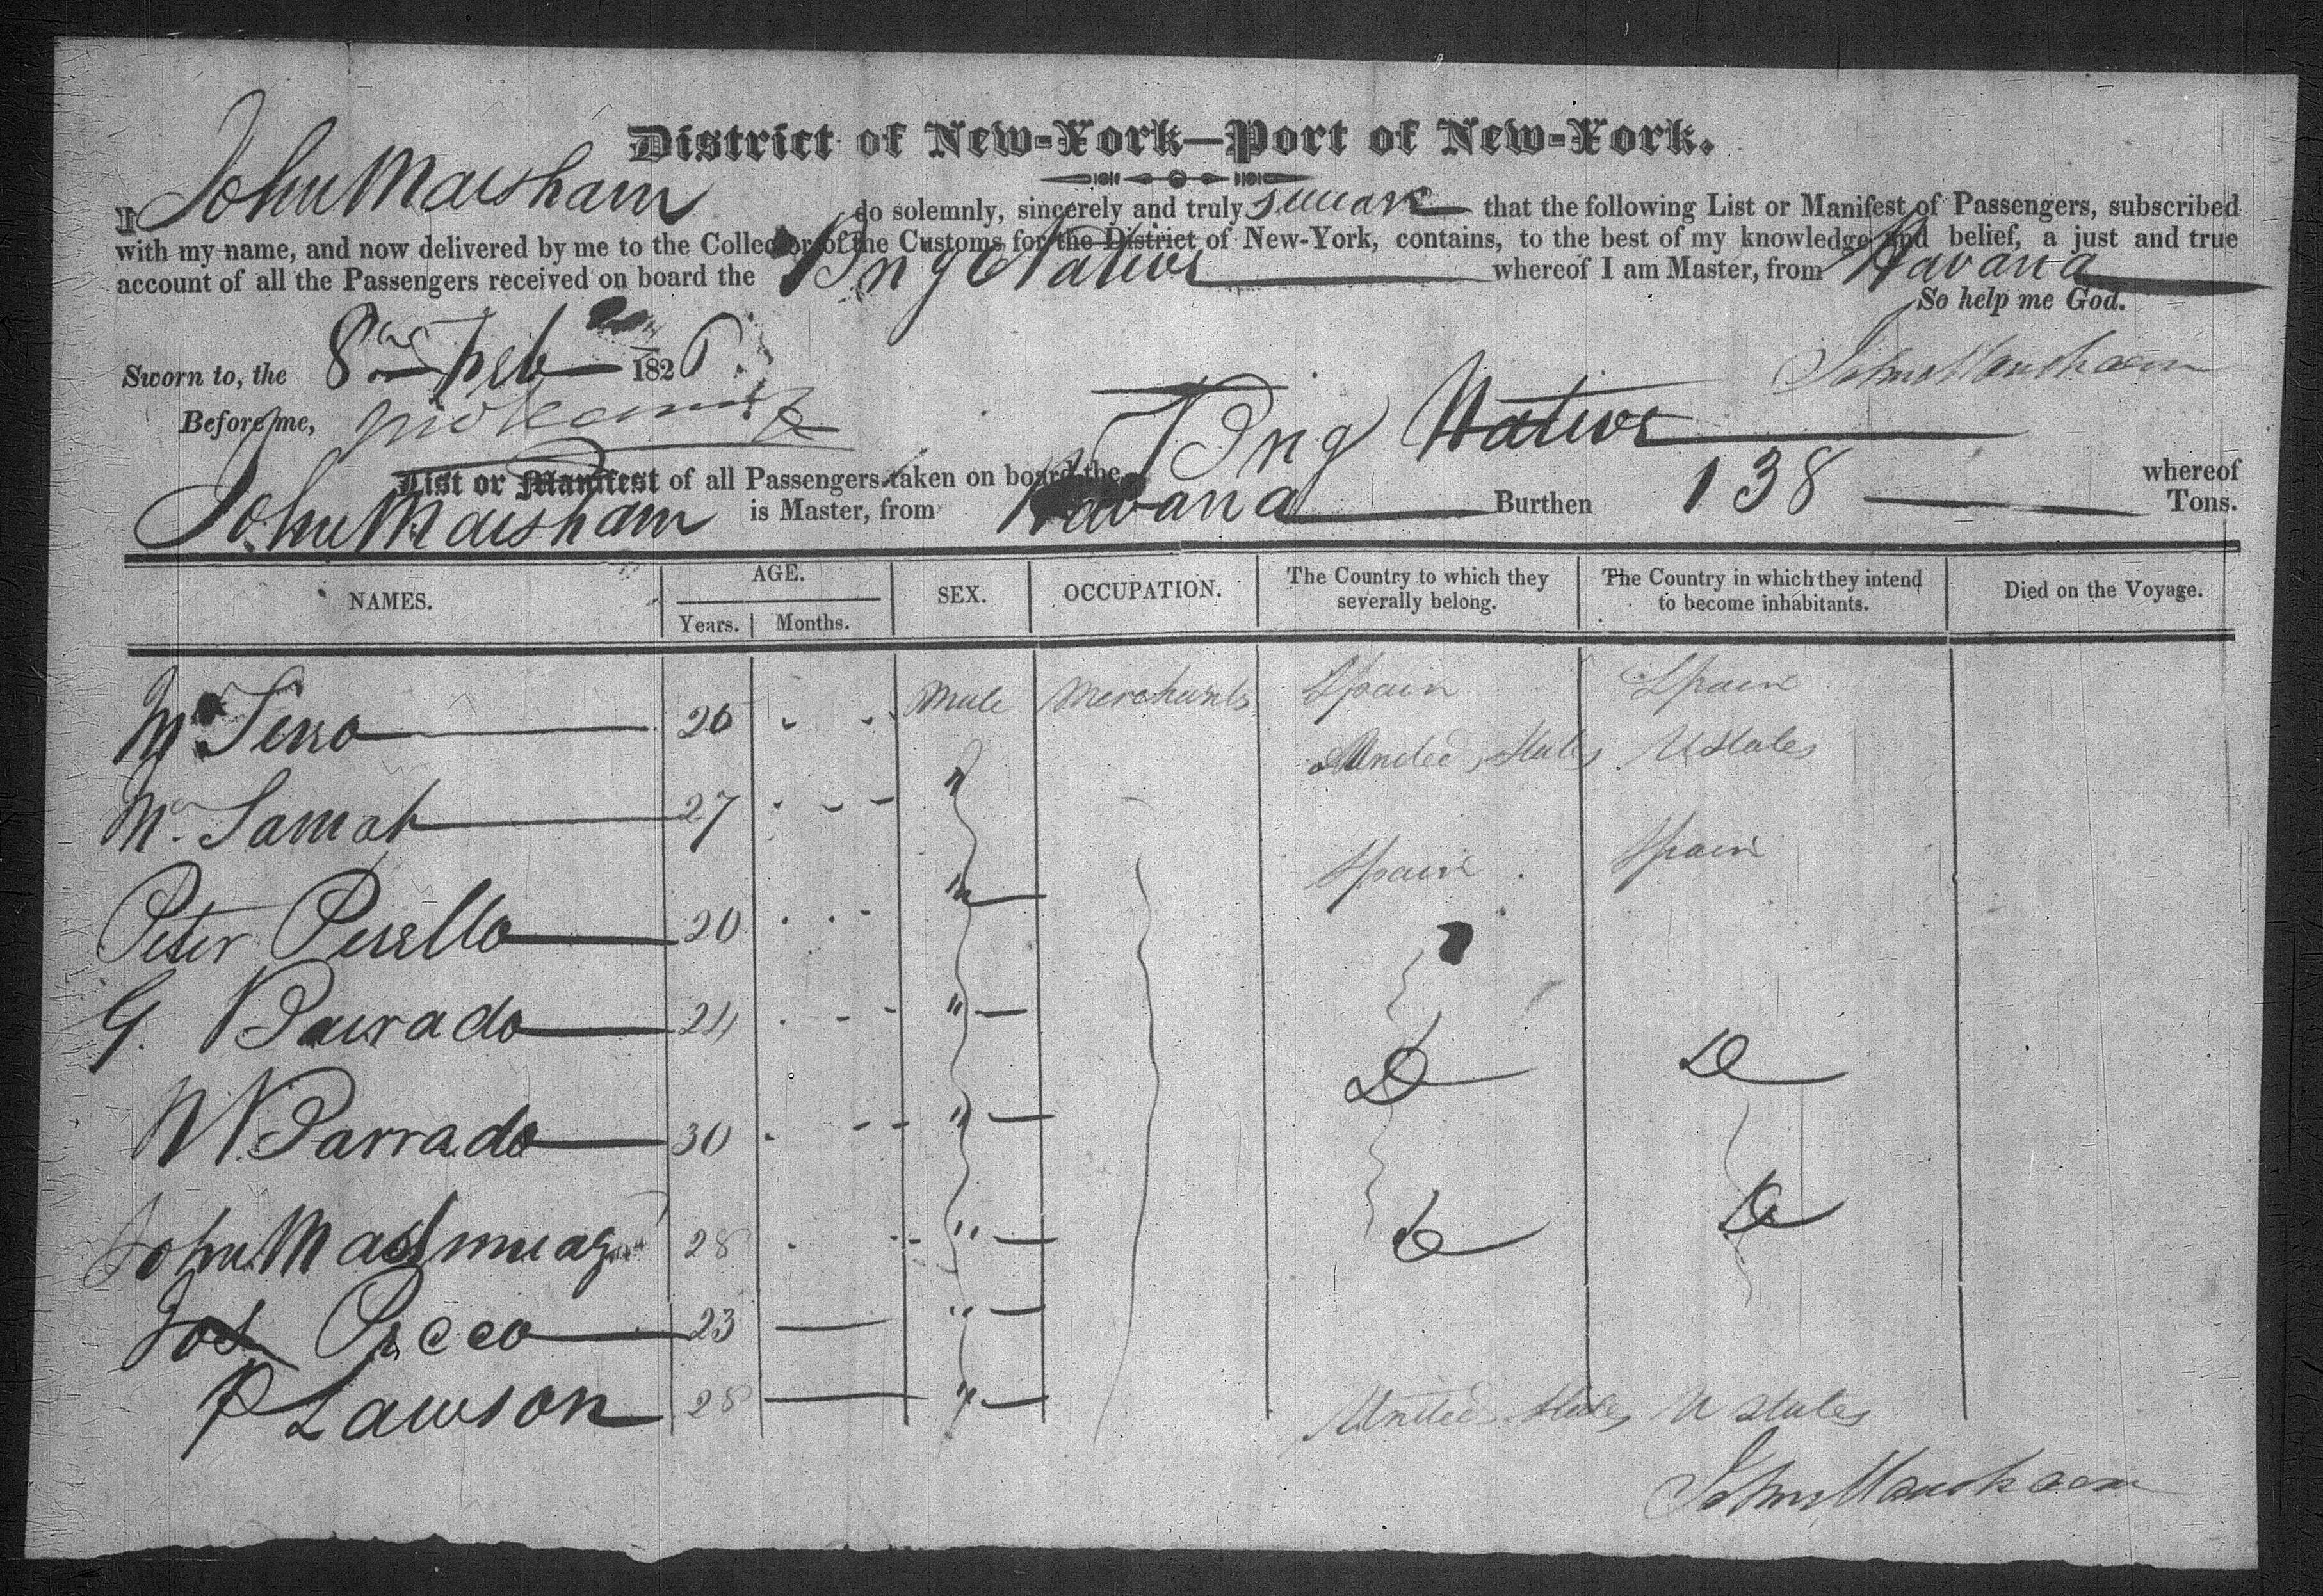 District of New-York—Port of New-York.
I John Marsham do solemnly, sincerely and truly swear that the following List or Manifest of Passengers, subscribed
with my name, and now delivered by me to the Collector of the Customs for the District of New-York, contains, to the best of my knowledge and belief, a just and true
account of all the Passengers received on board the Brig Native whereof I am Master, from Havana
So help me God.
Sworn to, the 8 Feb 1826. John Marsham
Before me,
List or Manifest of all Passengers taken on board the Brig Native whereof
John Marsham is Master, from Havana Burthen 138 Tons.
NAMES. AGE. SEX. OCCUPATION. The Country to which they severally belong. The Country in which they intend to become inhabitants. Died on the Voyage.
Years. Months.
Mr 26 Male Merchants Spain Spain
Mr 27 " United States U States
Peter 20 " Spain Spain
G. 24 "
Parrado 30 " Do Do
John 28 " Do Do
23 "
P Lawson 28 " United States U States
John Marsham